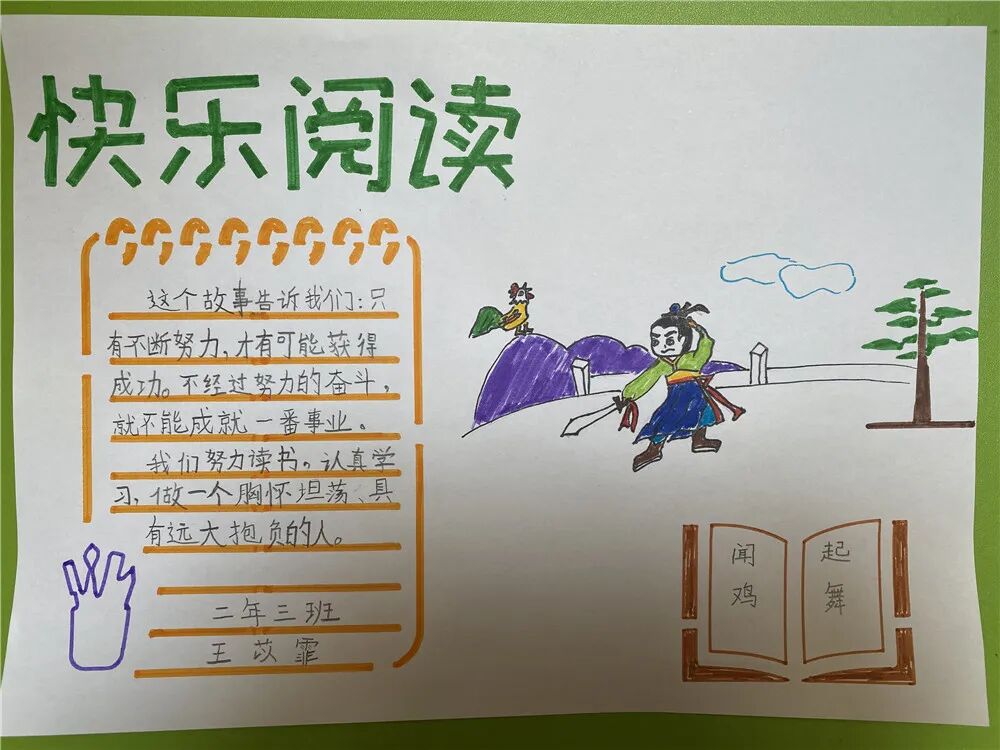 快乐阅读
这个故事告诉我们:只
有不断努力,才有可能获得
成功。不经过努力的奋斗,
就不能成就一番事业。
我们努力读书。认真学
习,做一个胸怀坦荡、具
有远大抱负的人。
二年三班
王苡霏
闻鸡
起舞